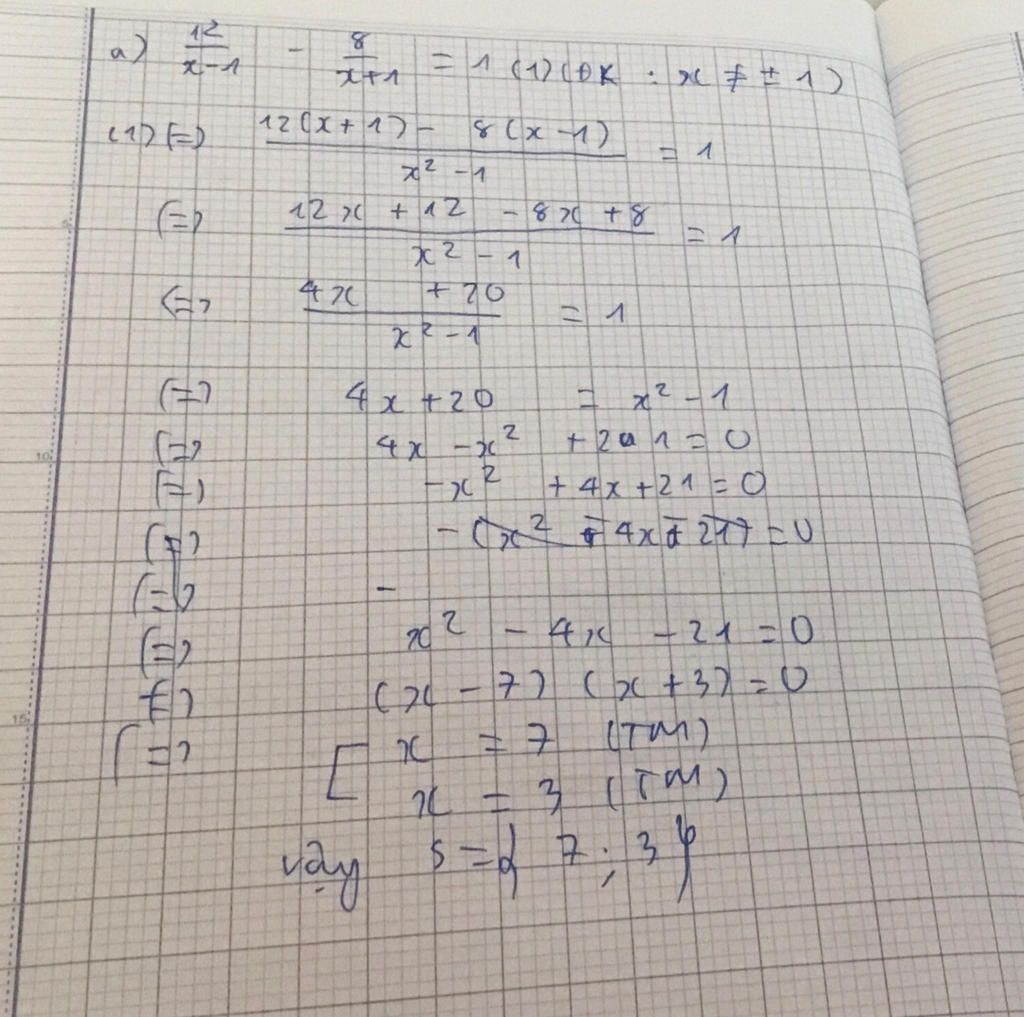 a) 12/(x-1) - 8/(x+1) = 1 (1) (ĐK : x ≠ ± 1)
(1) (=) (12(x+1) - 8(x-1))/(x² - 1) = 1
(=) (12x + 12 - 8x + 8)/(x² - 1) = 1
<=> (4x + 20)/(x² - 1) = 1
(=) 4x + 20 = x² - 1
(=) 4x - x² + 20 1 = 0
(=) -x² + 4x + 21 = 0
(=) - (x² - 4x - 21) = 0
(=) -
(=) x² - 4x - 21 = 0
(=) (x - 7) (x + 3) = 0
(=) [ x = 7 (TM)
x = 3 (TM)
vậy S = { 7 ; 3 }
10
15